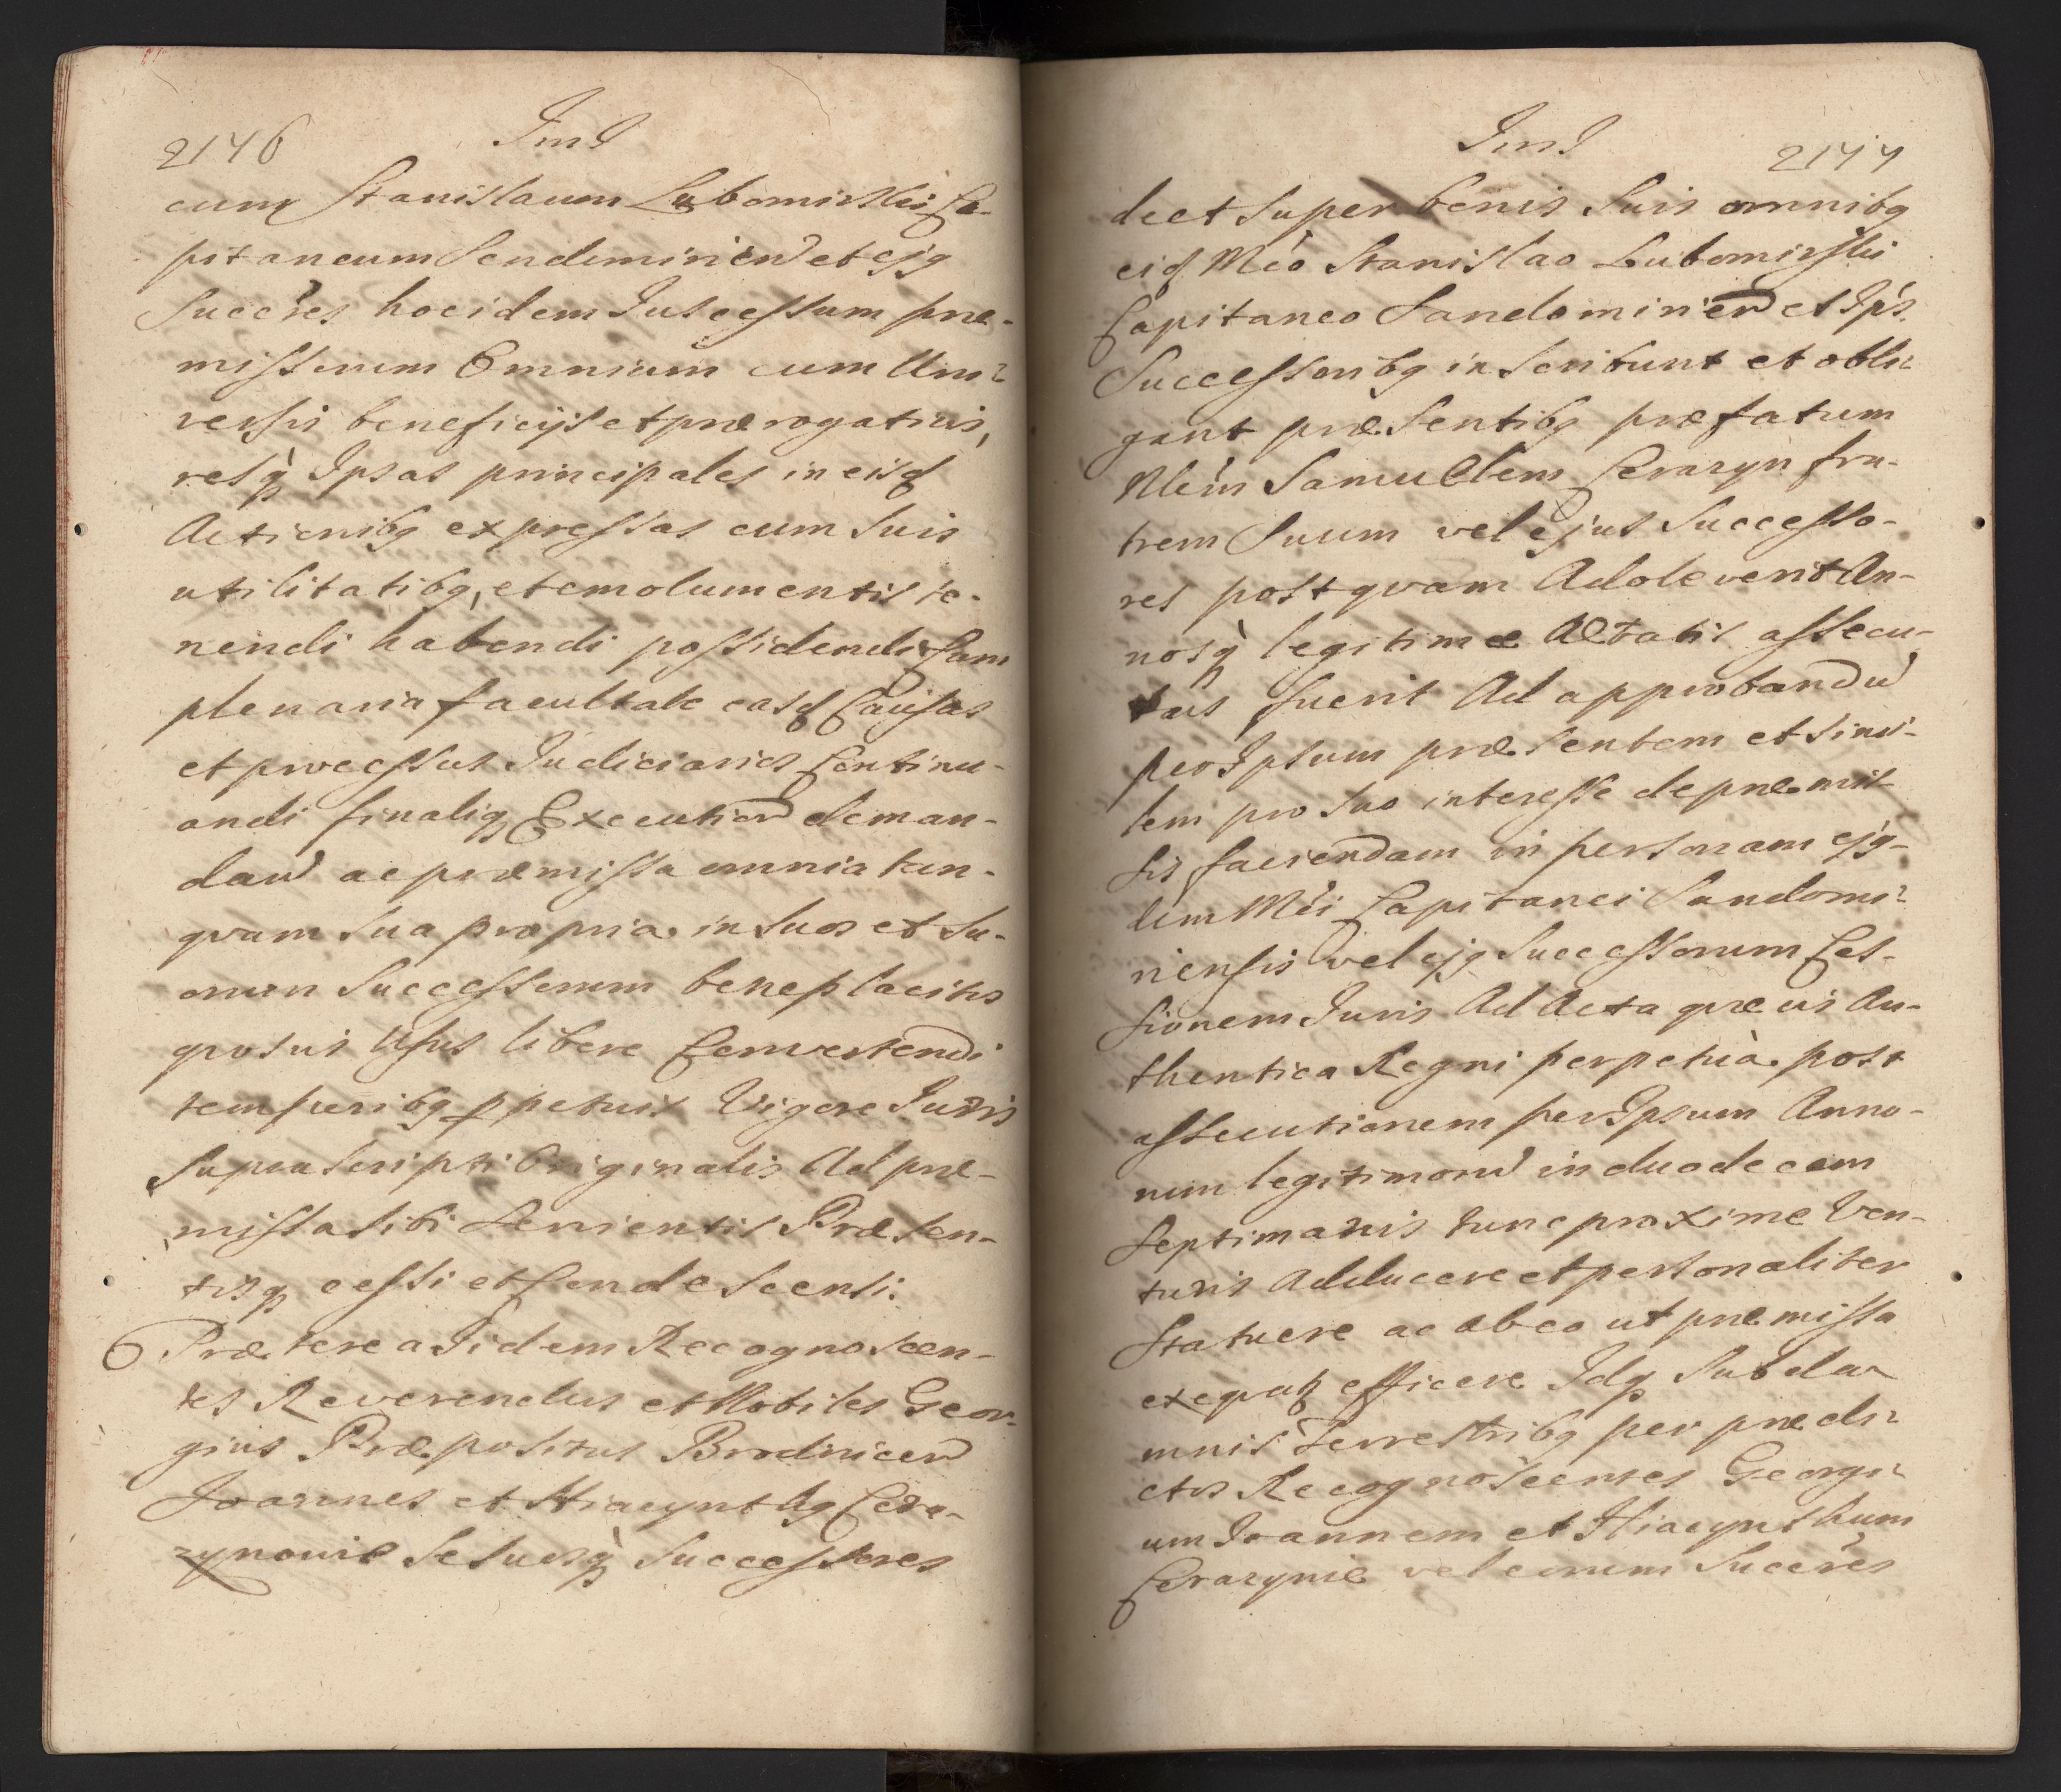 2146
cum Stanislaum Lubomirski Ca-
pitaneum Sendomirien et ejq
Succres hocidem Jus cessum præ-
missorum Omnium cum Uni-
versis beneficijs et prærogativis,
resq Ipsas principales in eisd
Actionibq expressas cum suis
utilitatibq, et emolumentis te-
nendi habendi possidendi Cum
plenaria facultate easd Causas
et processus Judiciarios Continu-
andi finaliq Execution deman-
dand ac præmissa omnia tan-
quam sua propria in suos et su-
orum Successorum beneplacitos
quosvis Usus libere Convertendi
temporibq ppetuis Vigore Juris
suprascripti Originalis Ad præ-
missa sibi Servientis Præsen-
tisq cessi et Condescensi.
Præterea Iidem Recognoscen-
tes Reverendus et Nobiles Geor-
gius Præpositus Brodnicen
Joannes et Hiacynthq Cera-
zynowie Se suosq Successores
2147
de et super bonis Suis omnibq
eid Mco Stanislao Lubomirski
Capitaneo Sandomirien et Ips.
Successoribq inscribunt et obli-
gant præsentibq præfatum
Nlem Samuelem Cerazyn fra-
trem Suum vel ejus Successo-
res postquam Adoleverit An-
nosq legitimæ Ætatis assecu-
tus fuerit Ad approbandu
per Ipsum præsentem et simi-
lem pro suo interesse de præmis-
sis faciendam in personam ejq-
dem Mci Capitanei Sandomi-
riensis vel ejq Successorum Ces-
sionem Juris Ad Acta quævis Au-
thentica Regni perpetua post
assecutionem per Ipsum Anno-
rum legitimoru in duodecem
Septimanis tunc proxime Ven-
turis Adducere et personaliter
Statuere ac ab eo ut præmissa
exequat efficere Idq Sub da-
mnis terrestribq per prædi-
ctos Recognoscentes Georgi-
um Joannem et Hiacynthum
Cerazynie vel eorum Succres